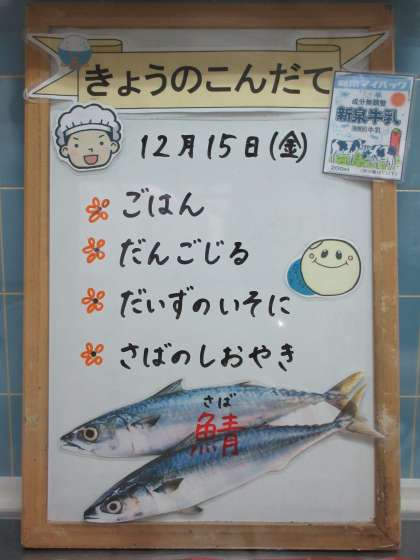 きょうのこんだて
成分無調整
新泉牛乳
200ml
12月15日(金)
ごはん
だんごじる
だいずのいそに
さばのしおやき
さば
鯖